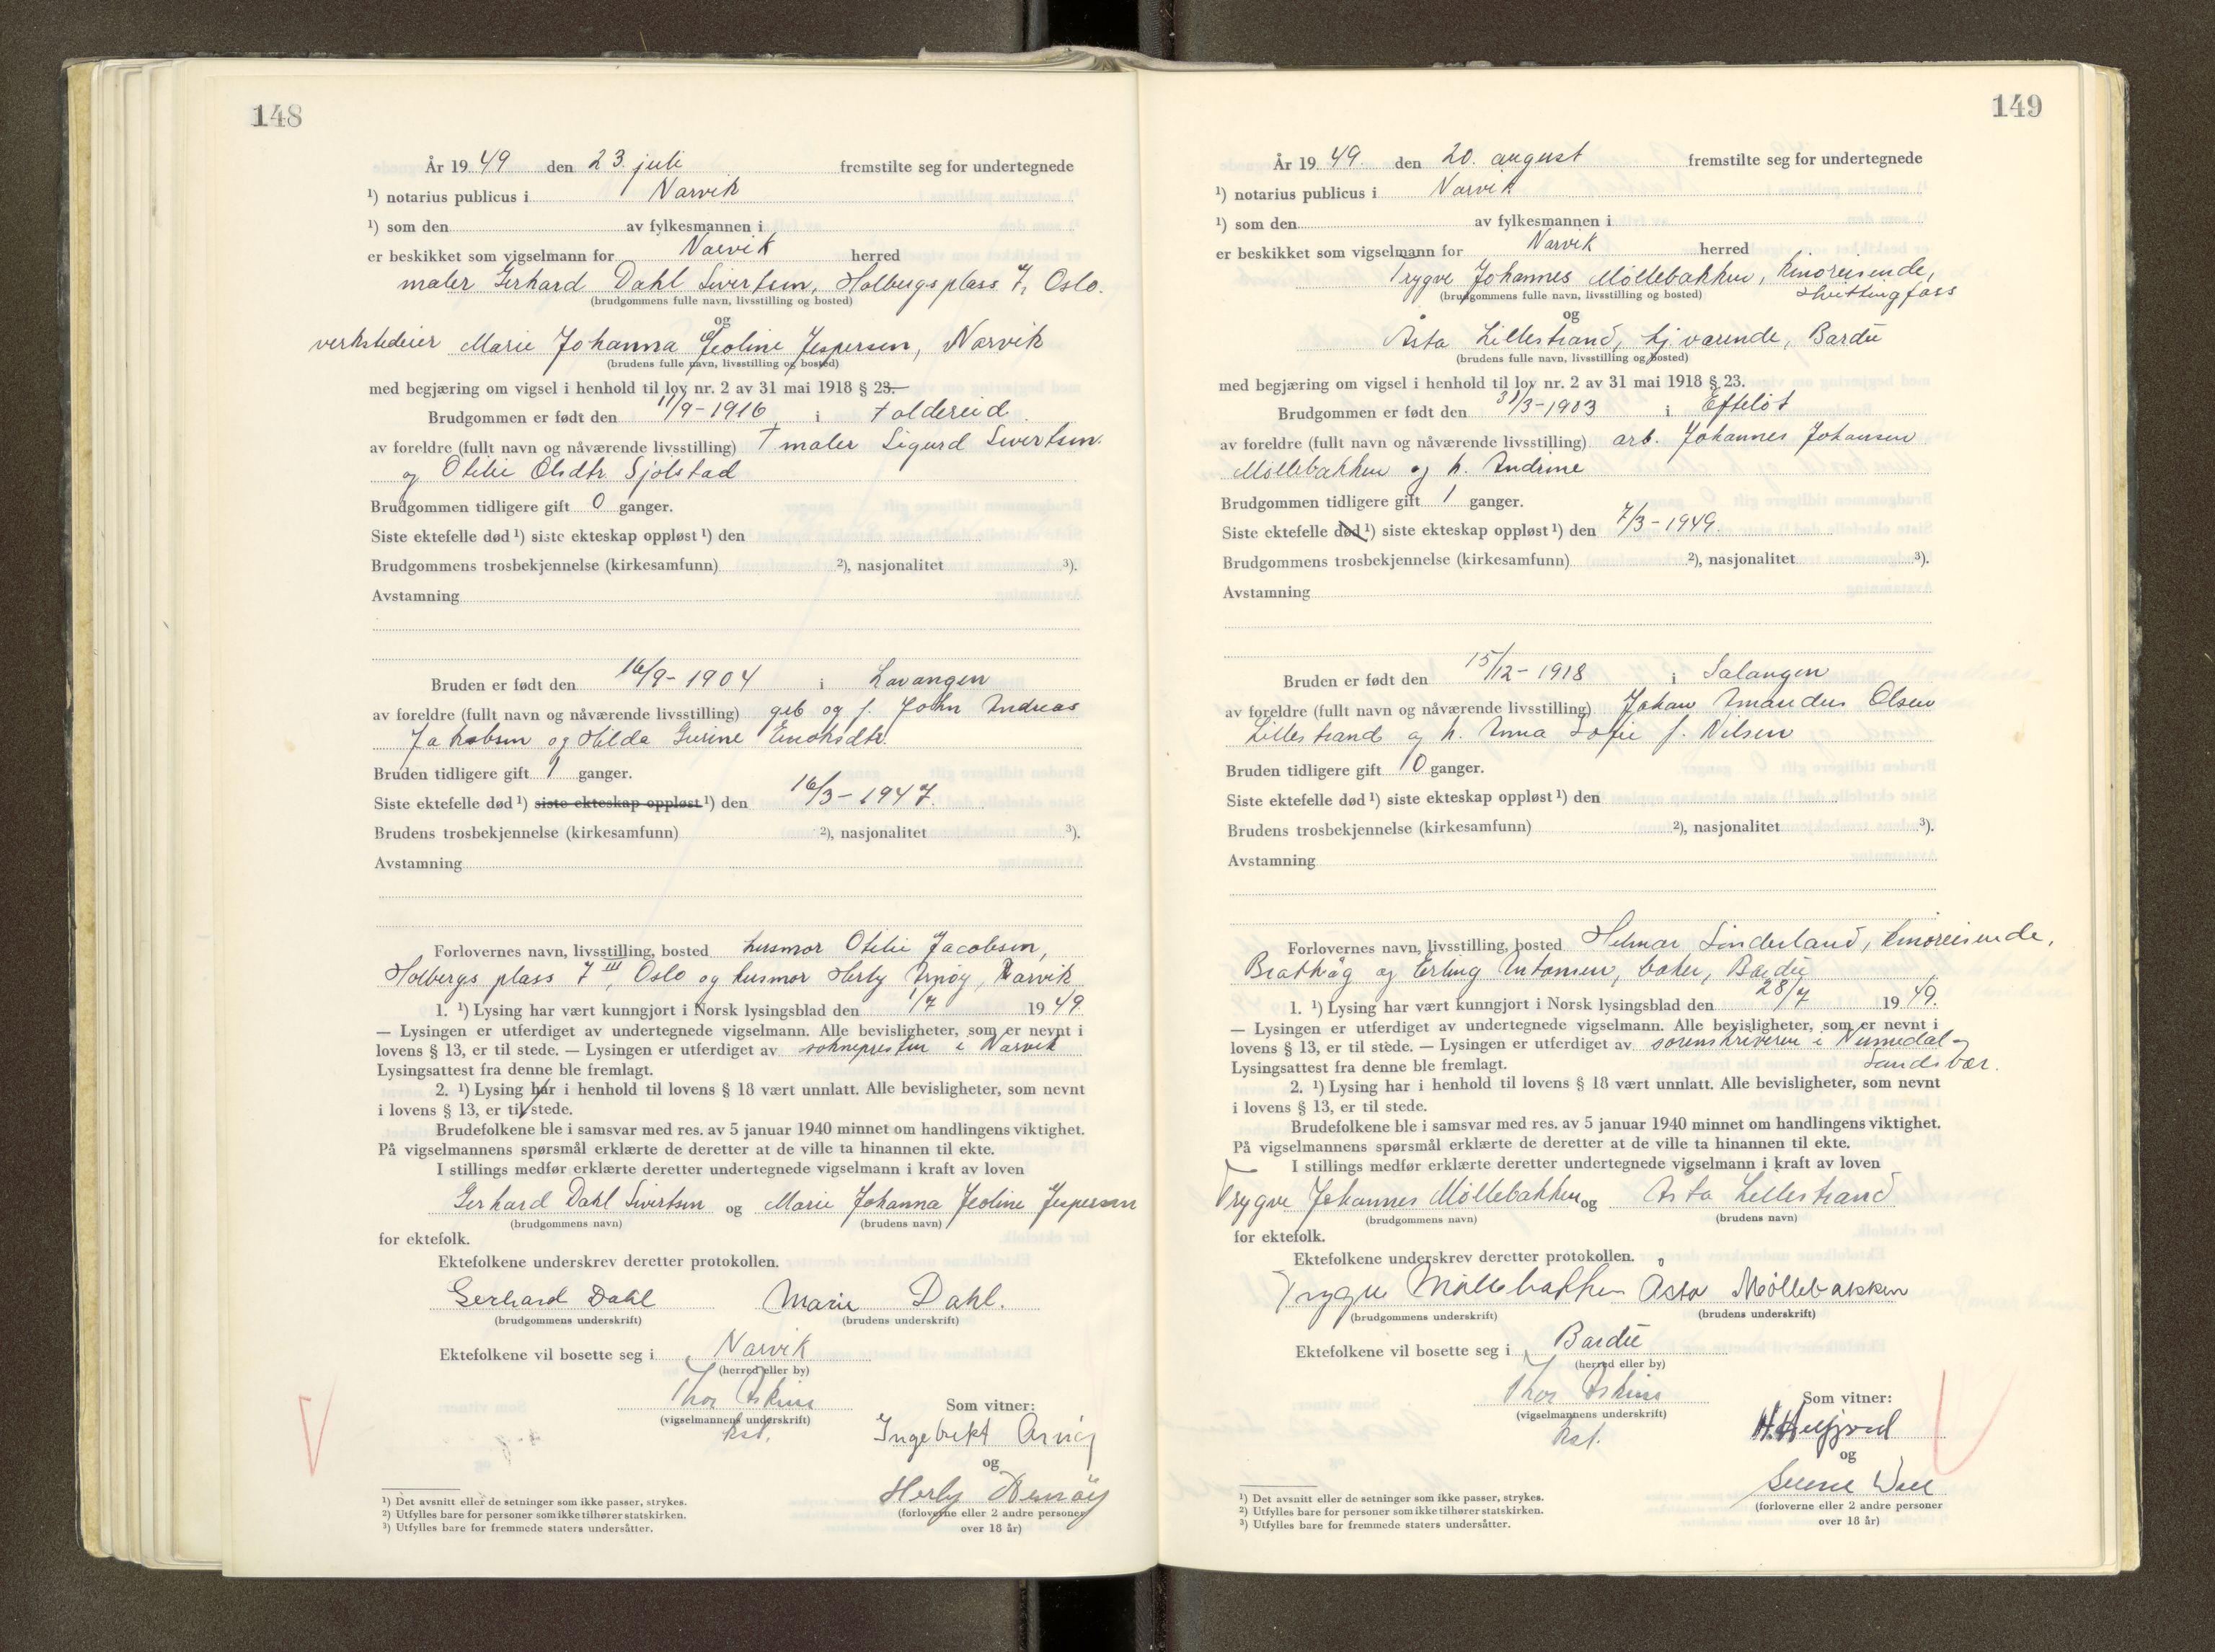 148
År 1949 den 23. juli fremstilte seg for undertegnede
¹) notarius publicus i Narvik
¹) som den av fylkesmannen i
er beskikket som vigselmann for Narvik herred
maler Gerhard Dahl Sivertsen, Holbergs plass 7, Oslo.
(brudgommens fulle navn, livsstilling og bosted)
og
verkstedeier Marie Johanna Jeoline Jespersen, Narvik
(brudens fulle navn, livsstilling og bosted)
med begjæring om vigsel i henhold til lov nr. 2 av 31 mai 1918 § 23.
Brudgommen er født den 11/9-1916 i Foldereid
av foreldre (fullt navn og nåværende livsstilling) † maler Sigurd Sivertsen
og Otilie Olsdtr. Sjølstad
Brudgommen tidligere gift 0 ganger.
Siste ektefelle død ¹) siste ekteskap oppløst ¹) den
Brudgommens trosbekjennelse (kirkesamfunn) ²), nasjonalitet ³).
Avstamning
Bruden er født den 16/9-1904 i Lavangen
av foreldre (fullt navn og nåværende livsstilling) gèb og f. John Andreas
Jakobsen og Hilda Gurine Enoksdtr.
Bruden tidligere gift 1 ganger.
Siste ektefelle død ¹) siste ekteskap oppløst ¹) den 16/3-1947.
Brudens trosbekjennelse (kirkesamfunn) ²), nasjonalitet ³).
Avstamning
Forlovernes navn, livsstilling, bosted husmor Otilie Jacobsen,
Holbergs plass 7 III, Oslo og husmor Herly Arnøy, Narvik
1. ¹) Lysing har vært kunngjort i Norsk lysingsblad den 1/7 1949
— Lysingen er utferdiget av undertegnede vigselmann. Alle bevisligheter, som er nevnt i
lovens § 13, er til stede. — Lysingen er utferdiget av soknepresten i Narvik
Lysingsattest fra denne ble fremlagt.
2. ¹) Lysing har i henhold til lovens § 18 vært unnlatt. Alle bevisligheter, som nevnt
i lovens § 13, er til stede.
Brudefolkene ble i samsvar med res. av 5 januar 1940 minnet om handlingens viktighet.
På vigselmannens spørsmål erklærte de deretter at de ville ta hinannen til ekte.
I stillings medfør erklærte deretter undertegnede vigselmann i kraft av loven
Gerhard Dahl Sivertsen og Marie Johanna Jeoline Jespersen
(brudgommens navn) (brudens navn)
for ektefolk.
Ektefolkene underskrev deretter protokollen.
Gerhard Dahl Marie Dahl.
(brudgommens underskrift) (brudens underskrift)
Ektefolkene vil bosette seg i Narvik
(herred eller by)
Thor
(vigselmannens underskrift)
kst.
Som vitner:
Ingebrikt Arnøy
og
Herly Arnøy
(forloverne eller 2 andre personer
over 18 år)
¹) Det avsnitt eller de setninger som ikke passer, strykes.
²) Utfylles bare for personer som ikke tilhører statskirken.
³) Utfylles bare for fremmede staters undersåtter.
149
År 1949. den 20. august fremstilte seg for undertegnede
¹) notarius publicus i Narvik
¹) som den av fylkesmannen i
er beskikket som vigselmann for Narvik herred
Trygve Johannes Møllebakken, kinoreisende,
Hvittingfoss
(brudgommens fulle navn, livsstilling og bosted)
og
Åsta Lillestrand, hj.værende, Bardu
(brudens fulle navn, livsstilling og bosted)
med begjæring om vigsel i henhold til lov nr. 2 av 31 mai 1918 § 23.
Brudgommen er født den 31/3-1903 i Efteløt
av foreldre (fullt navn og nåværende livsstilling) arb. Johannes Johansen
Møllebakken og h. Andrine
Brudgommen tidligere gift 1 ganger.
Siste ektefelle død ¹) siste ekteskap oppløst ¹) den 7/3-1949.
Brudgommens trosbekjennelse (kirkesamfunn) ²), nasjonalitet ³).
Avstamning
Bruden er født den 15/12-1918 i Salangen
av foreldre (fullt navn og nåværende livsstilling) Johan Amandus Olsen
Lillestrand og h. Anna Sofie f. Nilsen
Bruden tidligere gift 0 ganger.
Siste ektefelle død ¹) siste ekteskap oppløst ¹) den
Brudens trosbekjennelse (kirkesamfunn) ²), nasjonalitet ³).
Avstamning
Forlovernes navn, livsstilling, bosted Helmar Sinderland, kinoreisende,
og Erling Antonsen, baker, Bardu
1. ¹) Lysing har vært kunngjort i Norsk lysingsblad den 28/7 1949.
— Lysingen er utferdiget av undertegnede vigselmann. Alle bevisligheter, som er nevnt i
lovens § 13, er til stede. — Lysingen er utferdiget av sorenskriveren i Numedal-
Sandsvær.
Lysingsattest fra denne ble fremlagt.
2. ¹) Lysing har i henhold til lovens § 18 vært unnlatt. Alle bevisligheter, som nevnt
i lovens § 13, er til stede.
Brudefolkene ble i samsvar med res. av 5 januar 1940 minnet om handlingens viktighet.
På vigselmannens spørsmål erklærte de deretter at de ville ta hinannen til ekte.
I stillings medfør erklærte deretter undertegnede vigselmann i kraft av loven
Trygve Johannes Møllebakken og Åsta Lillestrand
(brudgommens navn) (brudens navn)
for ektefolk.
Ektefolkene underskrev deretter protokollen.
Trygve Møllebakken Åsta Møllebakken
(brudgommens underskrift) (brudens underskrift)
Ektefolkene vil bosette seg i Bardu
(herred eller by)
Thor
(vigselmannens underskrift)
kst.
Som vitner:
og
(forloverne eller 2 andre personer
over 18 år)
¹) Det avsnitt eller de setninger som ikke passer, strykes.
²) Utfylles bare for personer som ikke tilhører statskirken.
³) Utfylles bare for fremmede staters undersåtter.